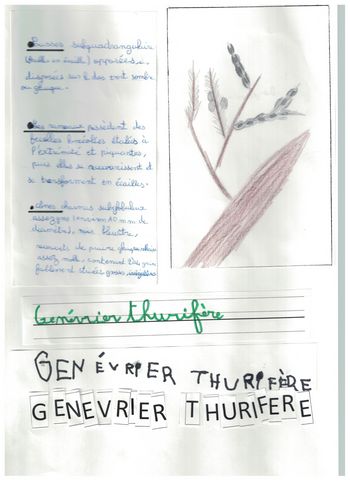 Pousses subquadrangulaire
(feuilles en écaille) opposées,
disposées sur 4 de vert sombre
ou glauque.
Les rameaux possèdent des
feuilles linéolées étalées à
l'extrémité et piquantes,
puis elles se recouvrissent et
se transforment en écailles.
cônes charnus subglobuleux
assez gros (environ 10 mm de
diamètre), noir bleuâtre,
recouverts de pruine glauque
assez molle, contenant
faiblement striées
Genévrier thurifère
GENÉVRIER THURIFÈRE
GENEVRIER THURIFERE